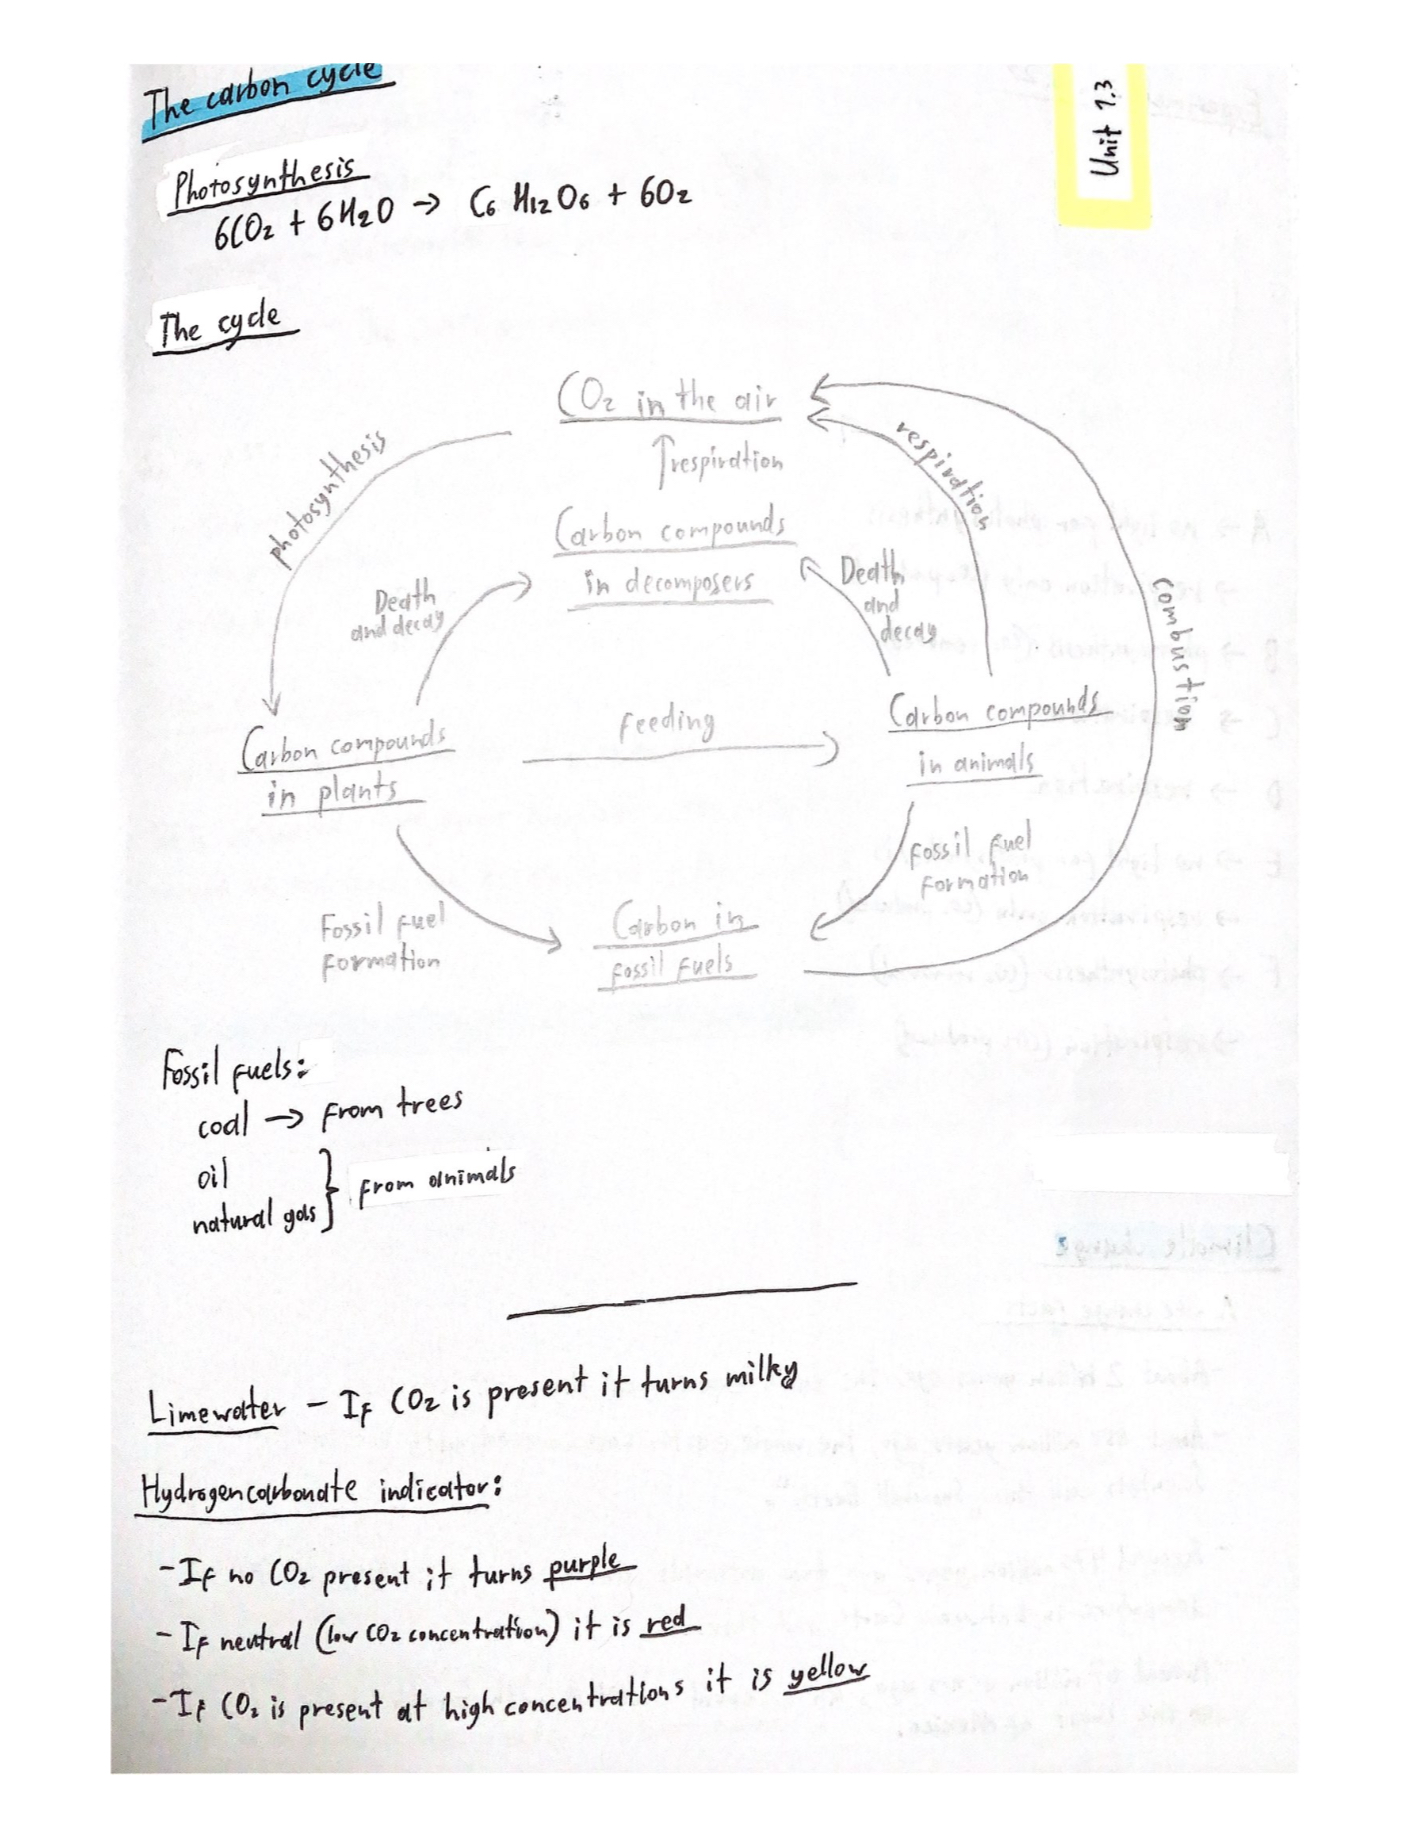 The carbon cycle
Unit 1.3
Photosynthesis
6CO₂ + 6H₂O → C₆H₁₂O₆ + 6O₂
The cycle
CO₂ in the air
photosynthesis
↑respiration
respiration
Carbon compounds
in decomposers
Death
and decay
Death
and
decay
combustion
Carbon compounds
in plants
Feeding
Carbon compounds
in animals
Fossil fuel
Formation
Fossil fuel
Formation
Carbon in
fossil fuels
Fossil fuels:
coal → From trees
oil
natural gas } From animals
Limewater - IF CO₂ is present it turns milky
Hydrogencarbonate indicator:
- If no CO₂ present it turns purple
- IF neutral (low CO₂ concentration) it is red
- IF CO₂ is present at high concentrations it is yellow